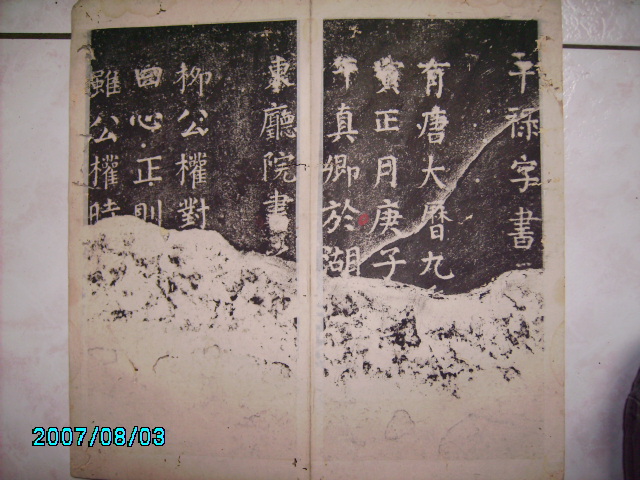 干祿字書
有唐大曆九
寅正月庚子
真卿於湖
東廳院書
柳公權對
曰心正則
雖公權時
2007/08/03